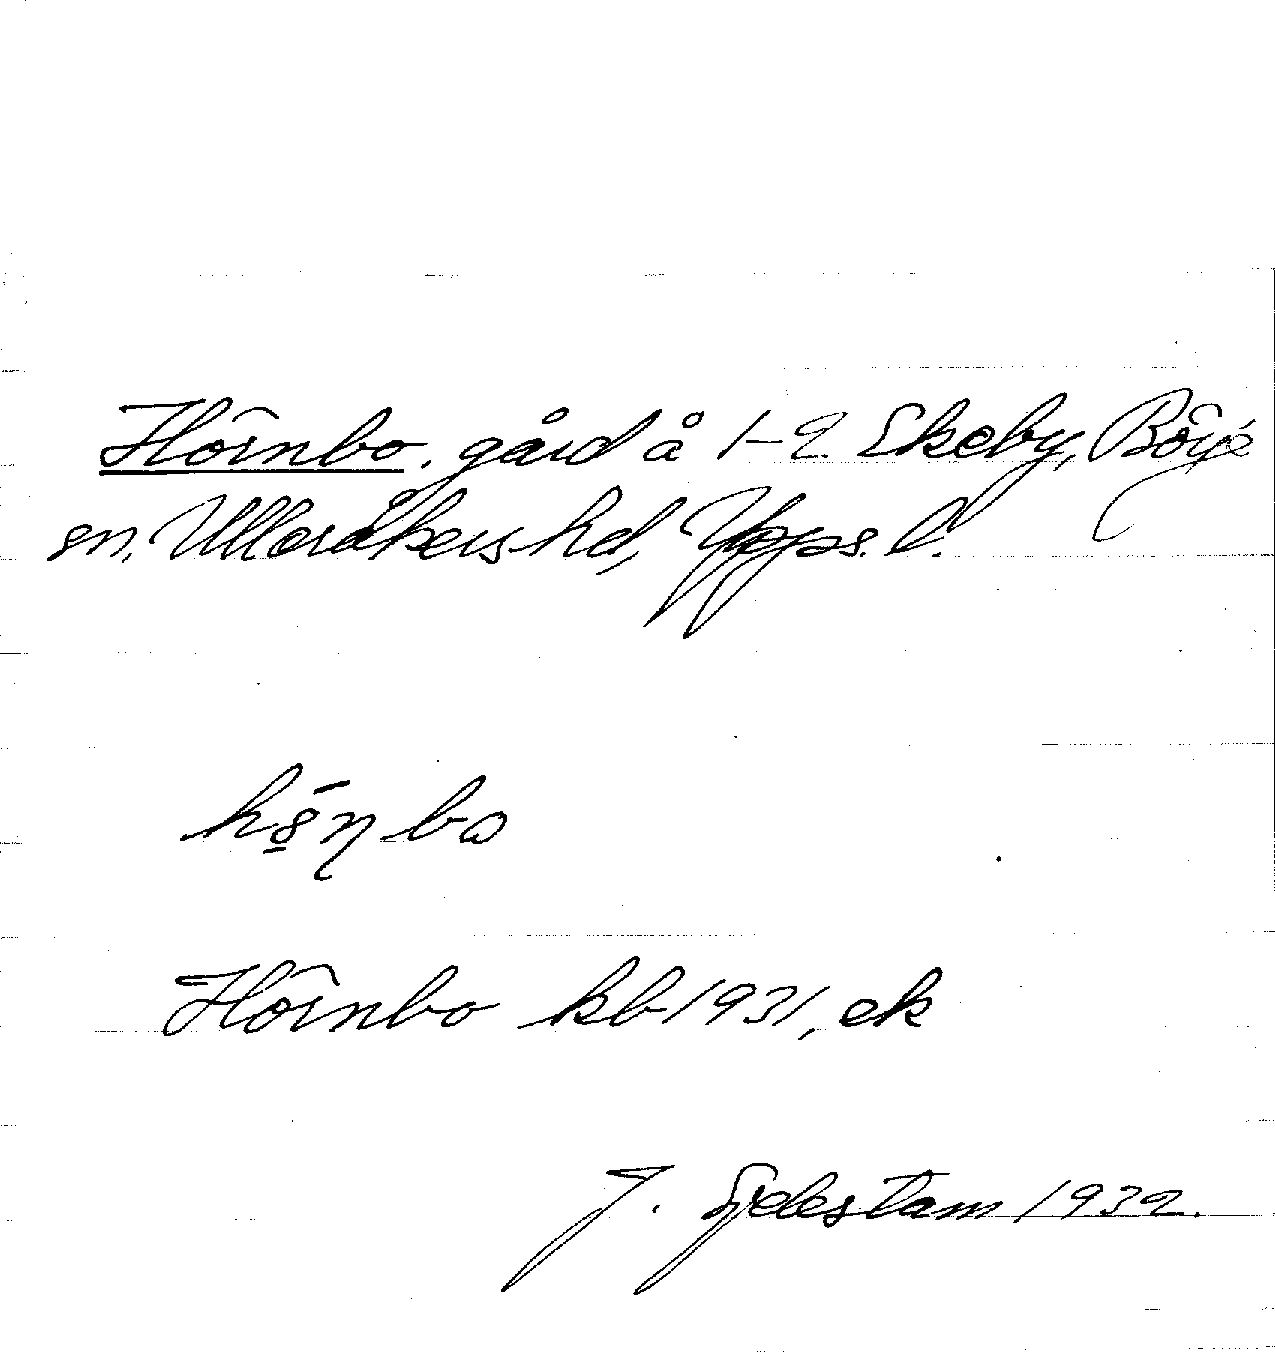 Hörnbo, gård å 1-2 Ekeby, Börje
sn, Ulleråkers hd, Upps. l.
Hörnbo kb 1931, ek
J. 1932.